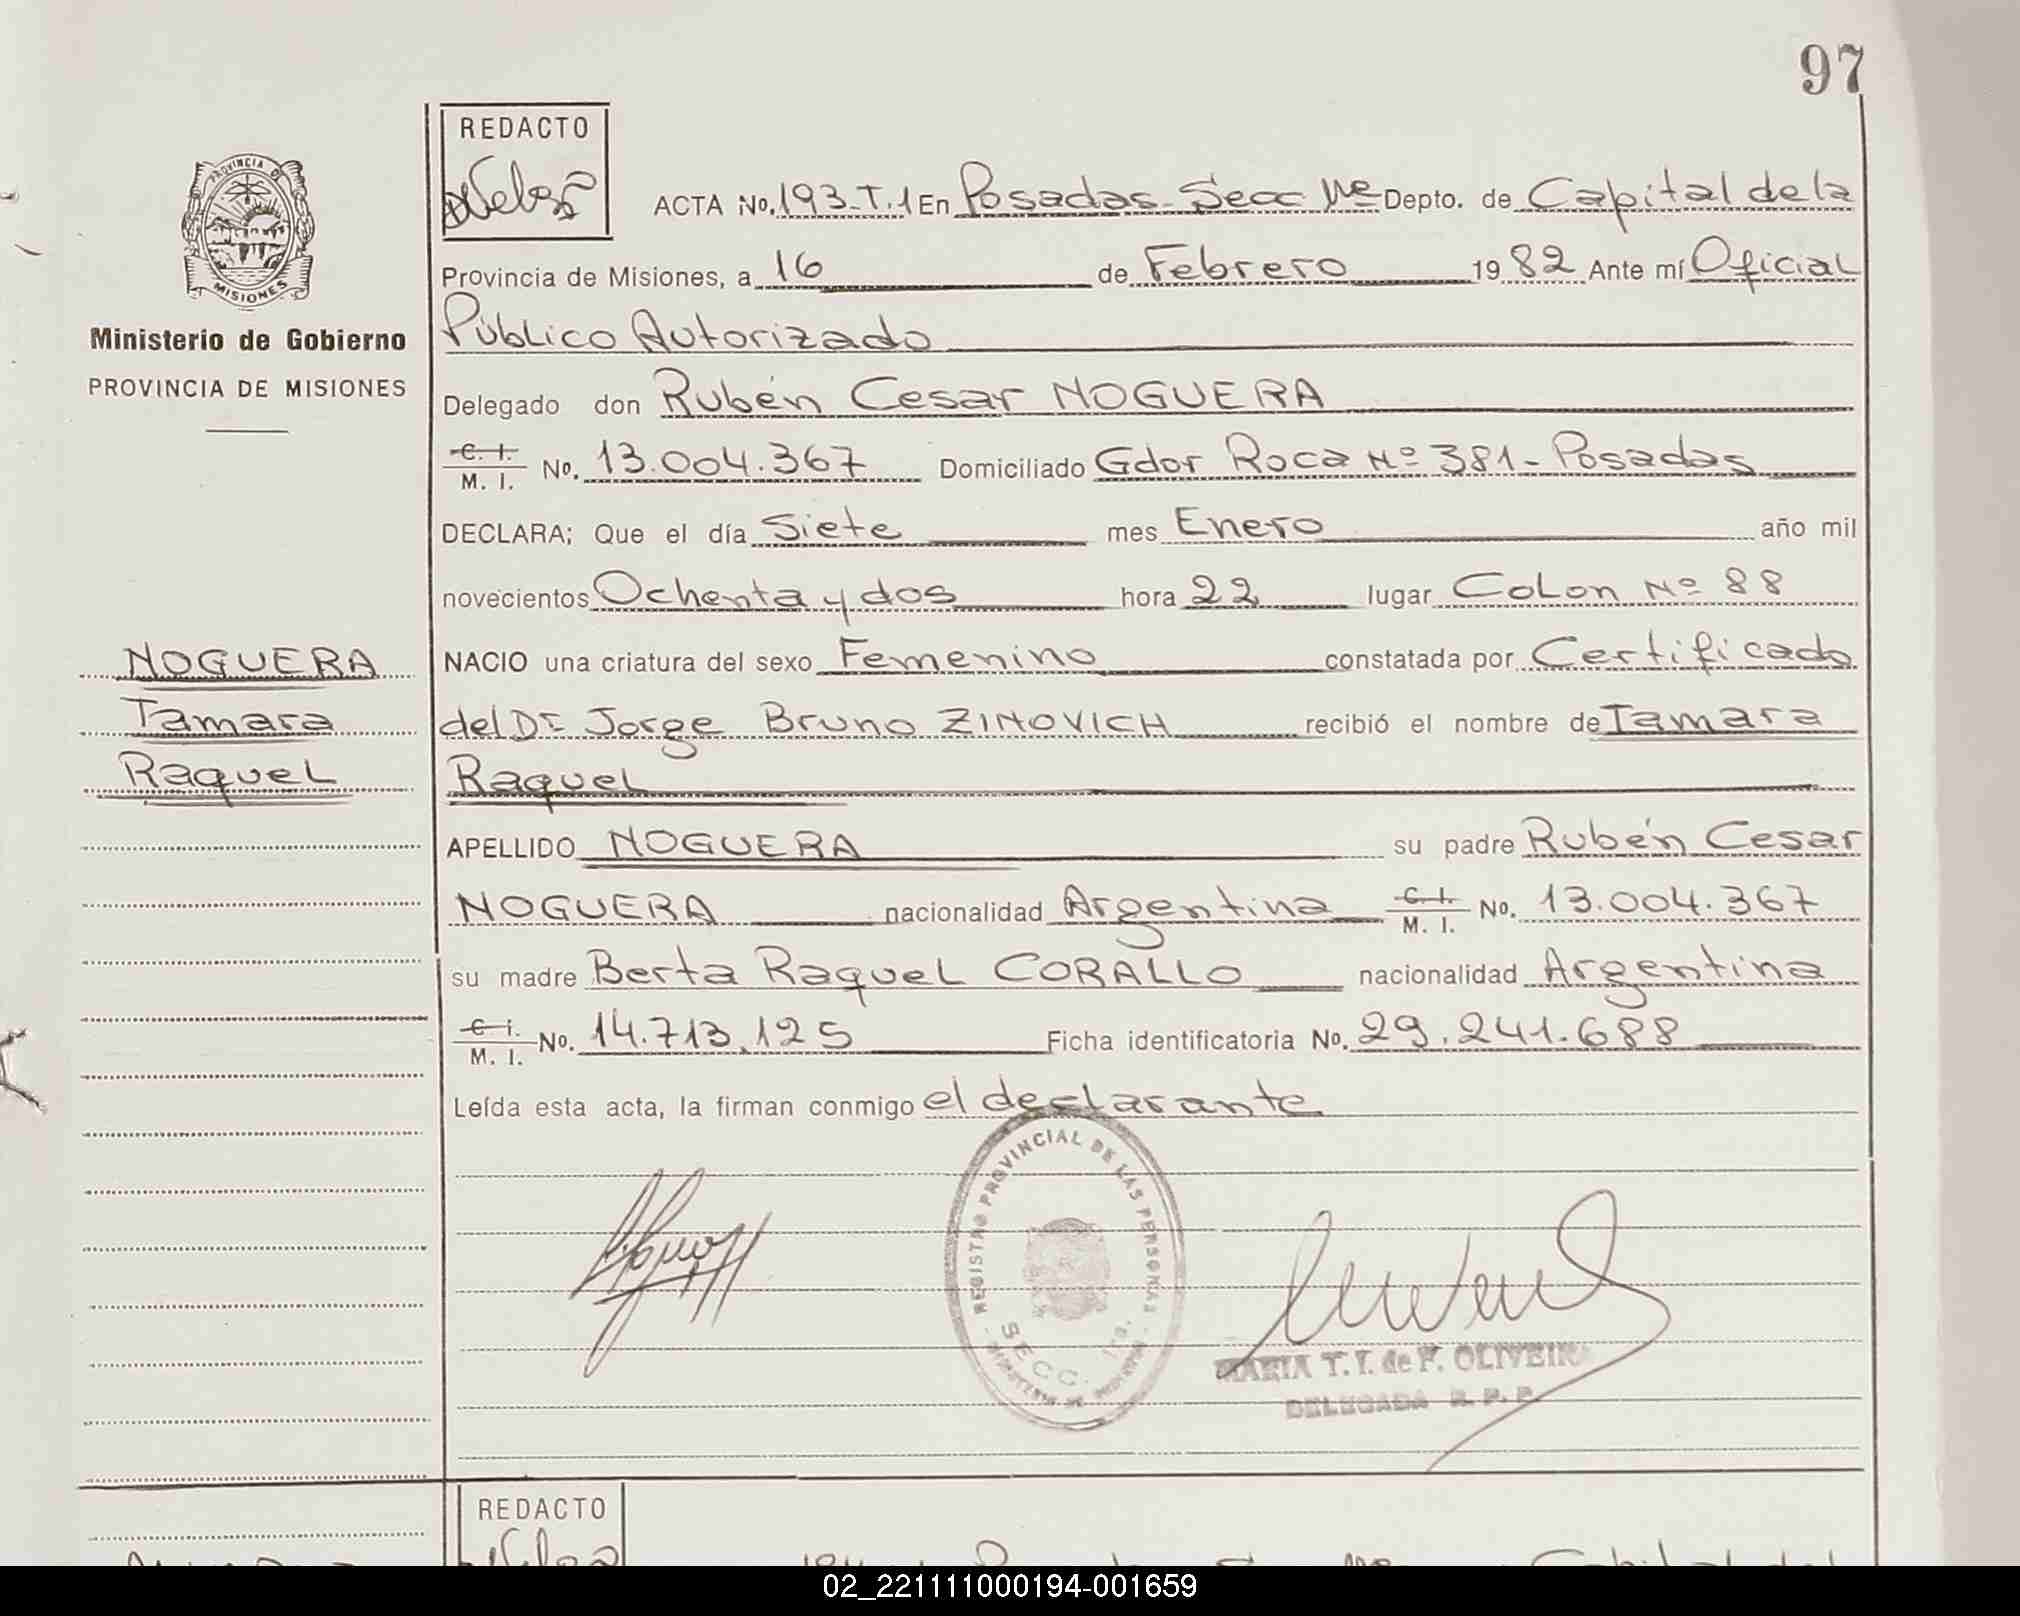 97
REDACTO
ACTA No. 193-T.1 En Posadas- Secc Nº Depto. de Capital de la
Provincia de Misiones, a 16 de Febrero 1982 Ante mí Oficial
Público Autorizado
Delegado don Rubén Cesar NOGUERA
C. I. M. I. No. 13.004.367 Domiciliado Gdor Roca Nº 381- Posadas
DECLARA; Que el día Siete mes Enero año mil
novecientos Ochenta y dos hora 22 lugar Colon Nº 88
NACIO una criatura del sexo Femenino constatada por Certificado
del Dr Jorge Bruno ZINOVICH recibió el nombre de Tamara
Raquel
APELLIDO NOGUERA su padre Rubén Cesar
NOGUERA nacionalidad Argentina C. I. M. I. No. 13.004.367
su madre Berta Raquel CORALLO nacionalidad Argentina
C. I. M. I. No. 14.713.125 Ficha identificatoria No. 29.241.688
Leída esta acta, la firman conmigo el declarante
PROVINCIA DE
MISIONES
Ministerio de Gobierno
PROVINCIA DE MISIONES
NOGUERA
Tamara
Raquel
REGISTRO PROVINCIAL DE LAS PERSONAS
SECC.
MARIA T. I. de F. OLIVEIRA
DELEGADA R. P. P.
REDACTO
02_221111000194-001659